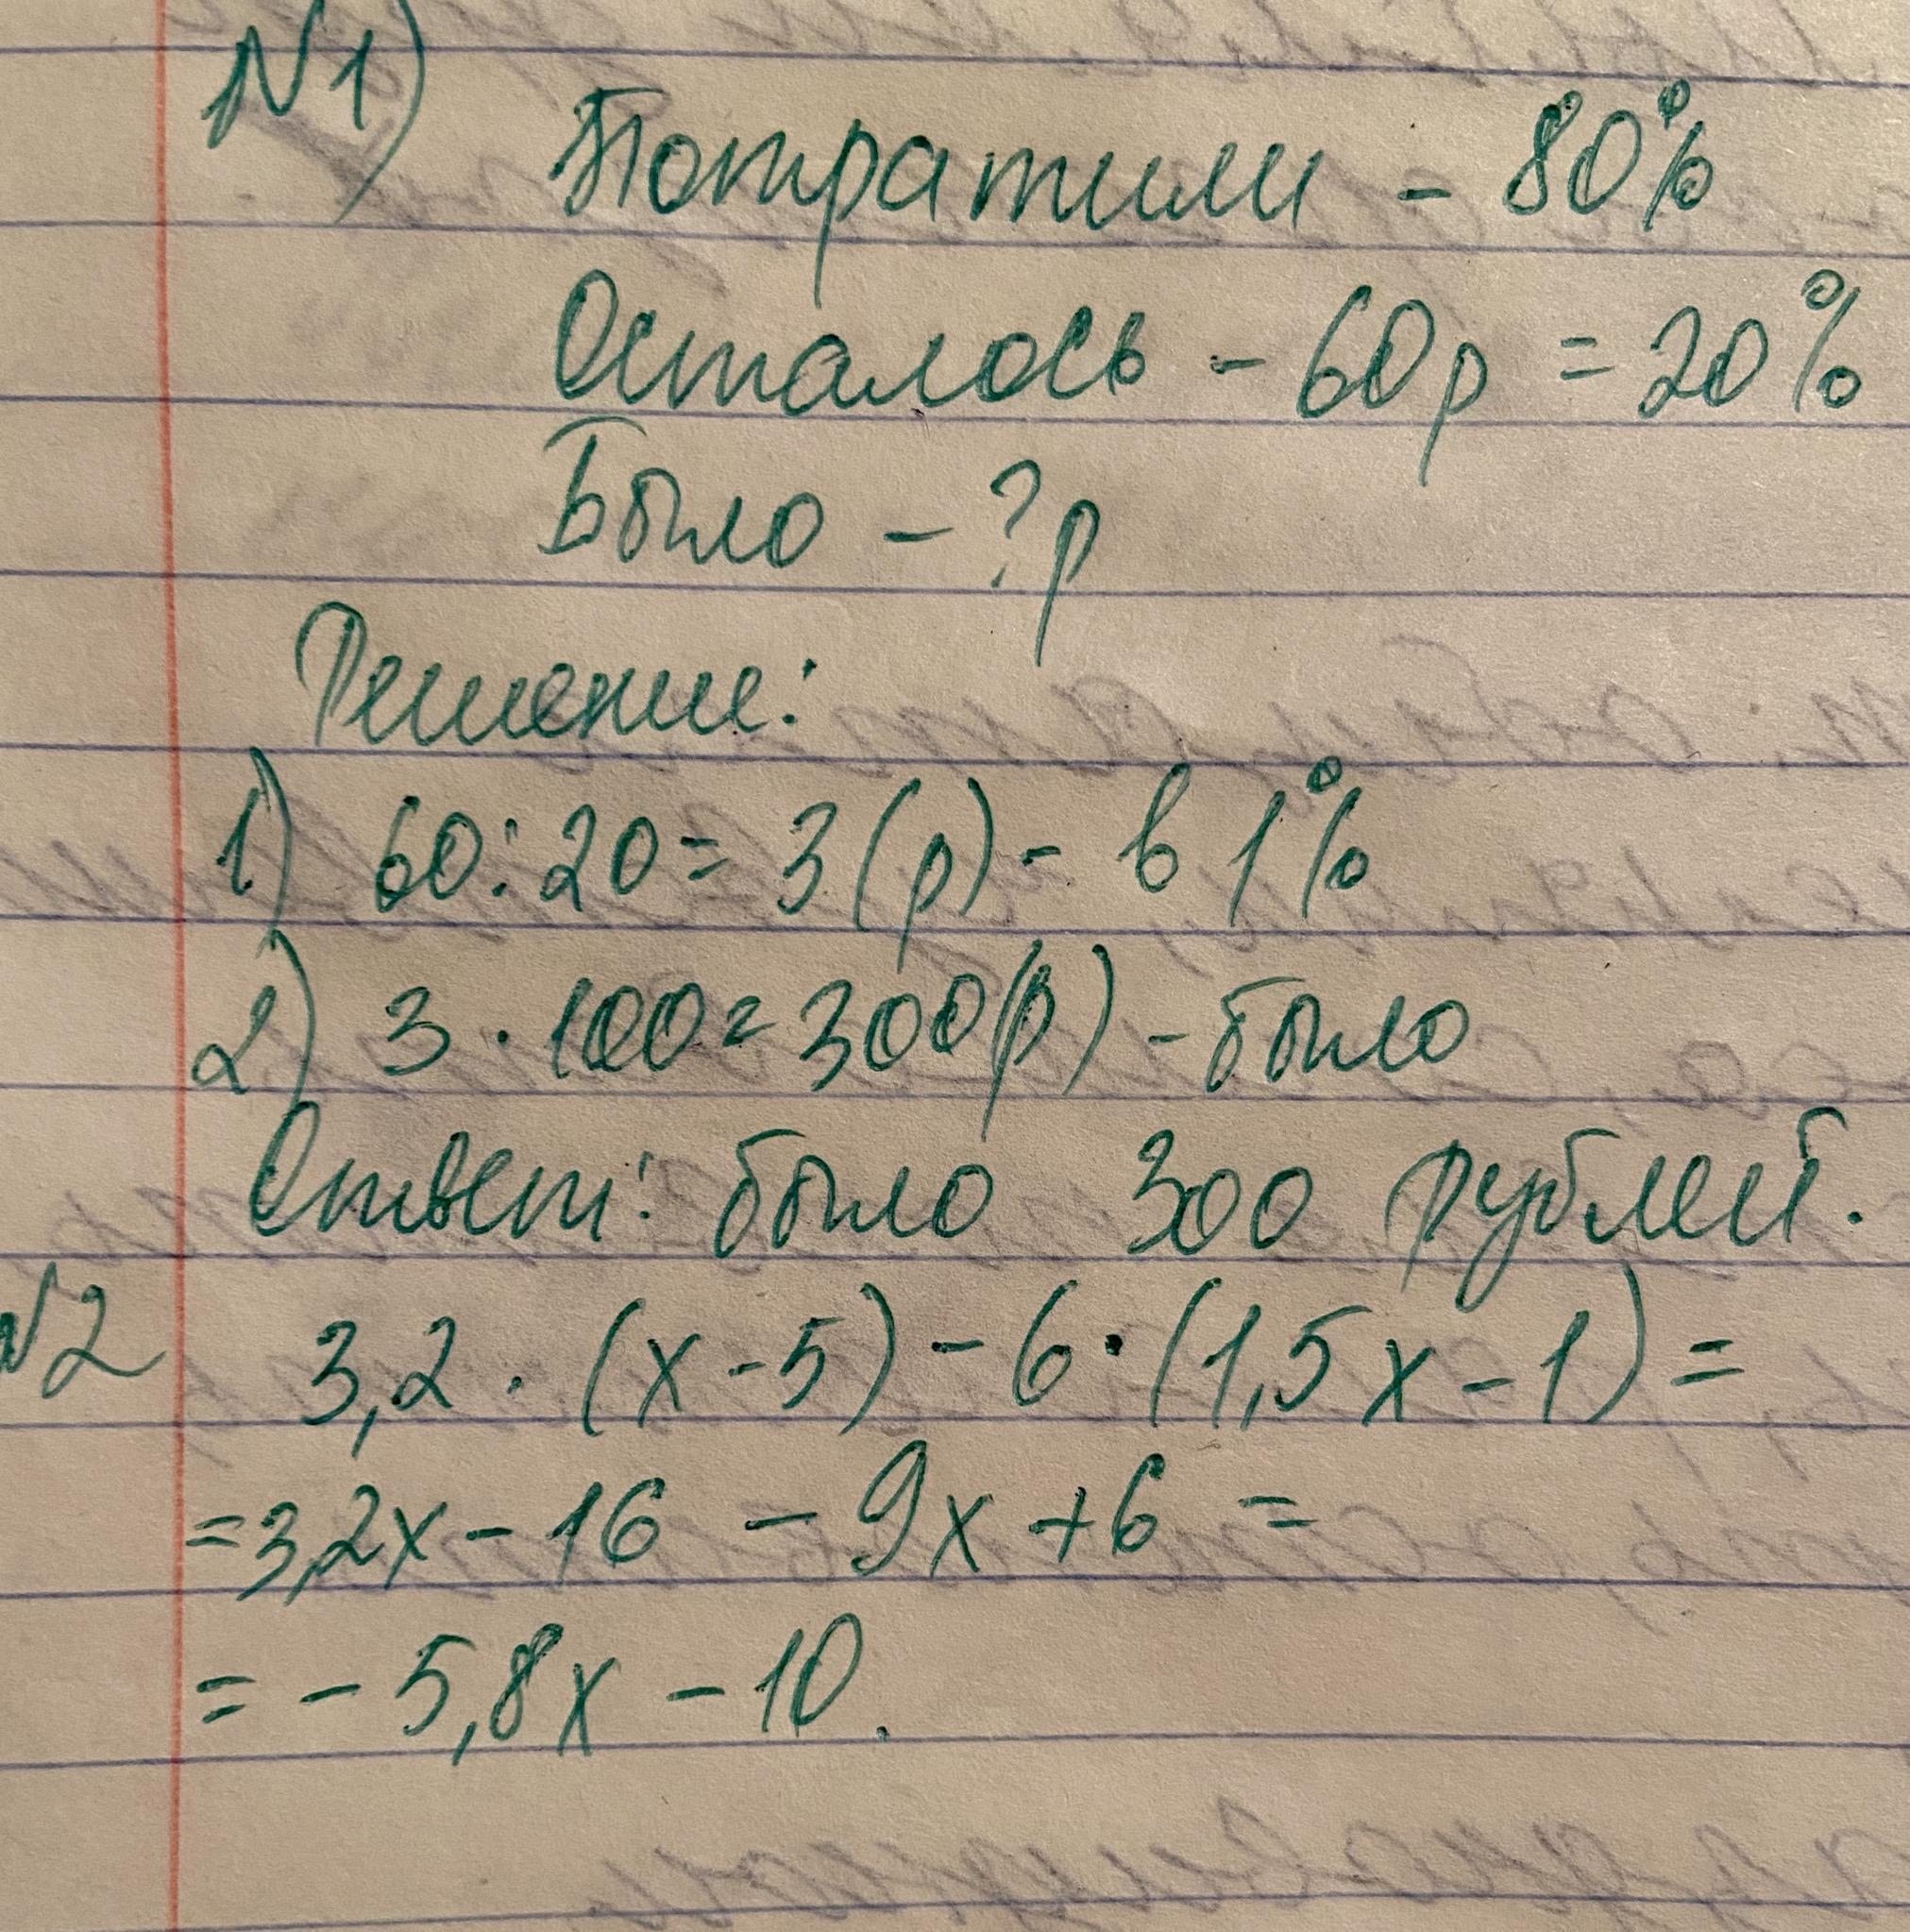 №1)
Потратили - 80%
Осталось - 60р = 20%
Было - ?р
Решение:
1) 60:20=3(р)- в 1%
2) 3 · 100=300(р) - было
Ответ: было 300 рублей.
№2 3,2 · (х - 5) - 6·(1,5х - 1) =
=3,2х - 16 - 9х +6 =
= - 5,8х - 10.